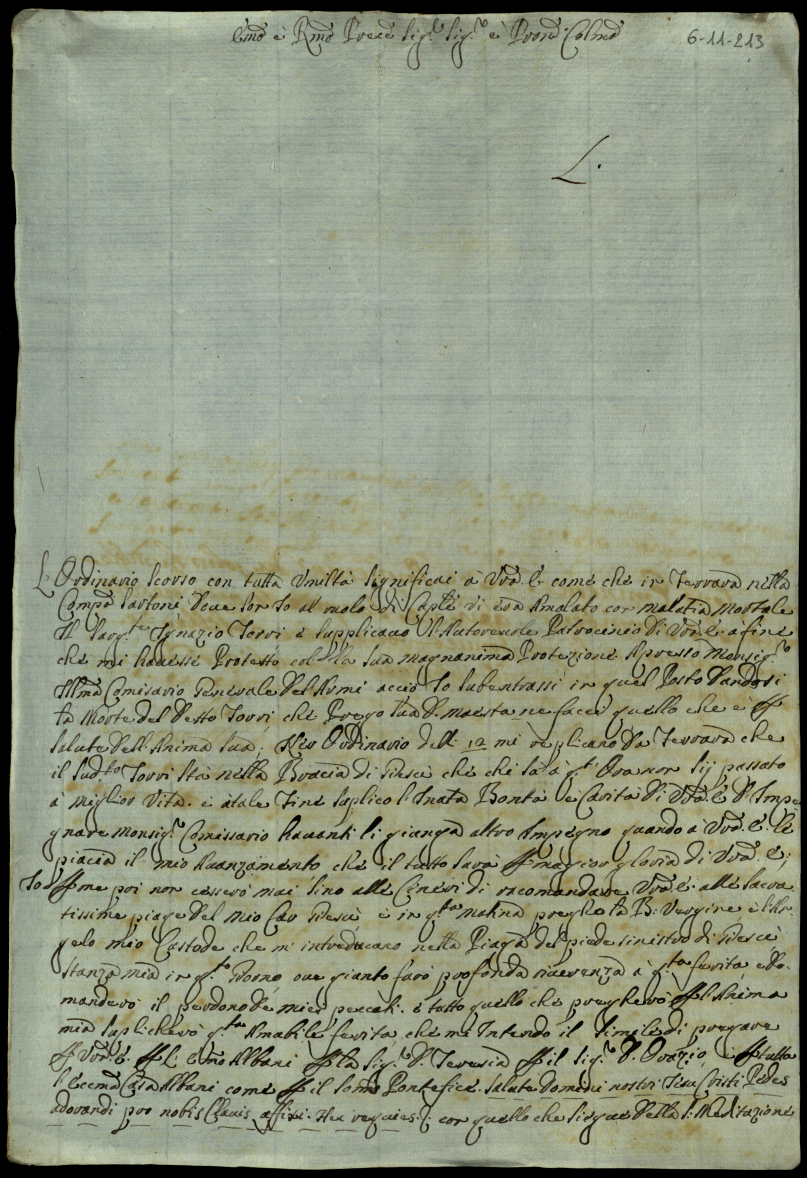 Emõ è Rmõ Prẽnè Sig:r Sig:re è Prõnè Colmõ
6-11-213
L.
L Ordinario scorso con tutta Umiltà significai à Vrã. E. come che in Ferrara nella
Compã Sartoni dove son Io al ruolo di Caple vi era Amalato con malatia Mortale
Il Sarg:te Ignazio Torri è supplicavo l'Autorevole Patrocinio di Vrã. E. à fine
che mi havesse Protetto colla sua magnanima Protezione Apresso Monsig:re
Illmõ Comisario Generale del Armi acciò Io subentrassi in quel Posto
la Morte del detto Torri, che Prego sua D. Maestà ne faccè quello che è p
salute dell Anima sua; Ier Ordinario delli 12 mi replicano da Ferrara che
il Sud:to Torri stà nella Braccia di Giesè che chi sà à q:t Ora non sij passato
à miglior Vita. è à tale Fine suplico l'Innata Bontà è Carità di Vrã. E. d'Impe
gnare Monsig:r Comissario havanti li gianga altro Impegno quando à Vrã. E. le
piacia il mio Avanzamento che il tutto sarà p magior gloria di Vrã. E.;
Io p me poi non cesserò mai sino alle Ceneri di racomandare Vrã. E. alle Sacra
tissime piage del mio Car Giesè è in q:ta matina pregho la B: Vergine è l'An
gelo mio Custode che m' introducano nella Piaga del piede sinistro di Giesè
stanza mia in q:to Giorno ove gianto farò profonda riverenza à q:ta ferita è do
manderò il perdono de miei peccati. è tutto quello che pregherò p l'Anima
mia suplicherò q:ta Amabile ferita, che mi Intendo il simile di pregare
p Vrã. E. p l: Emõ Albani p la Sig:ra D. Teresia p il Sig:r D. Orazio, è p tutta
l'Eccmã Casa Albani come p il Somõ Pontefice. Salute Domini nostri Iesu Cristi Pedes
adorandi pro nobis Clavis affixi. Hex requies.: con quello che siegue della S: Meditazione